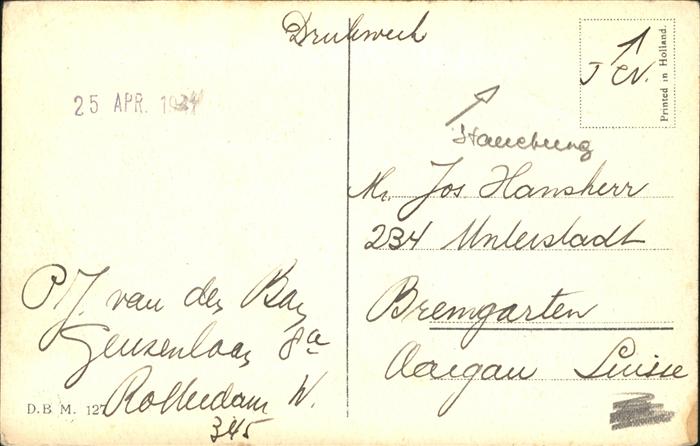 Drukwerk
25 APR. 1934
T CV.
Printed in Holland.
Mr. Jos. Hansherr
234 Unterstadt
Bremgarten
Aargau Suisse
P. J. van den Bag
Geuzenlaan 8a
Rotterdam W.
345
D.B M. 127